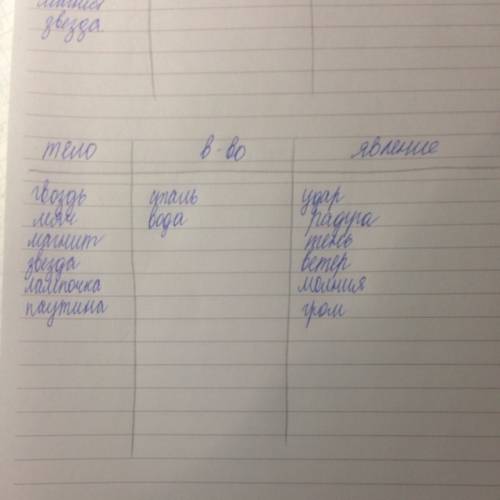 звезда
тело в-во явление
гвоздь сталь удар
мяч вода радуга
магнит тень
звезда ветер
лампочка молния
паутина гром